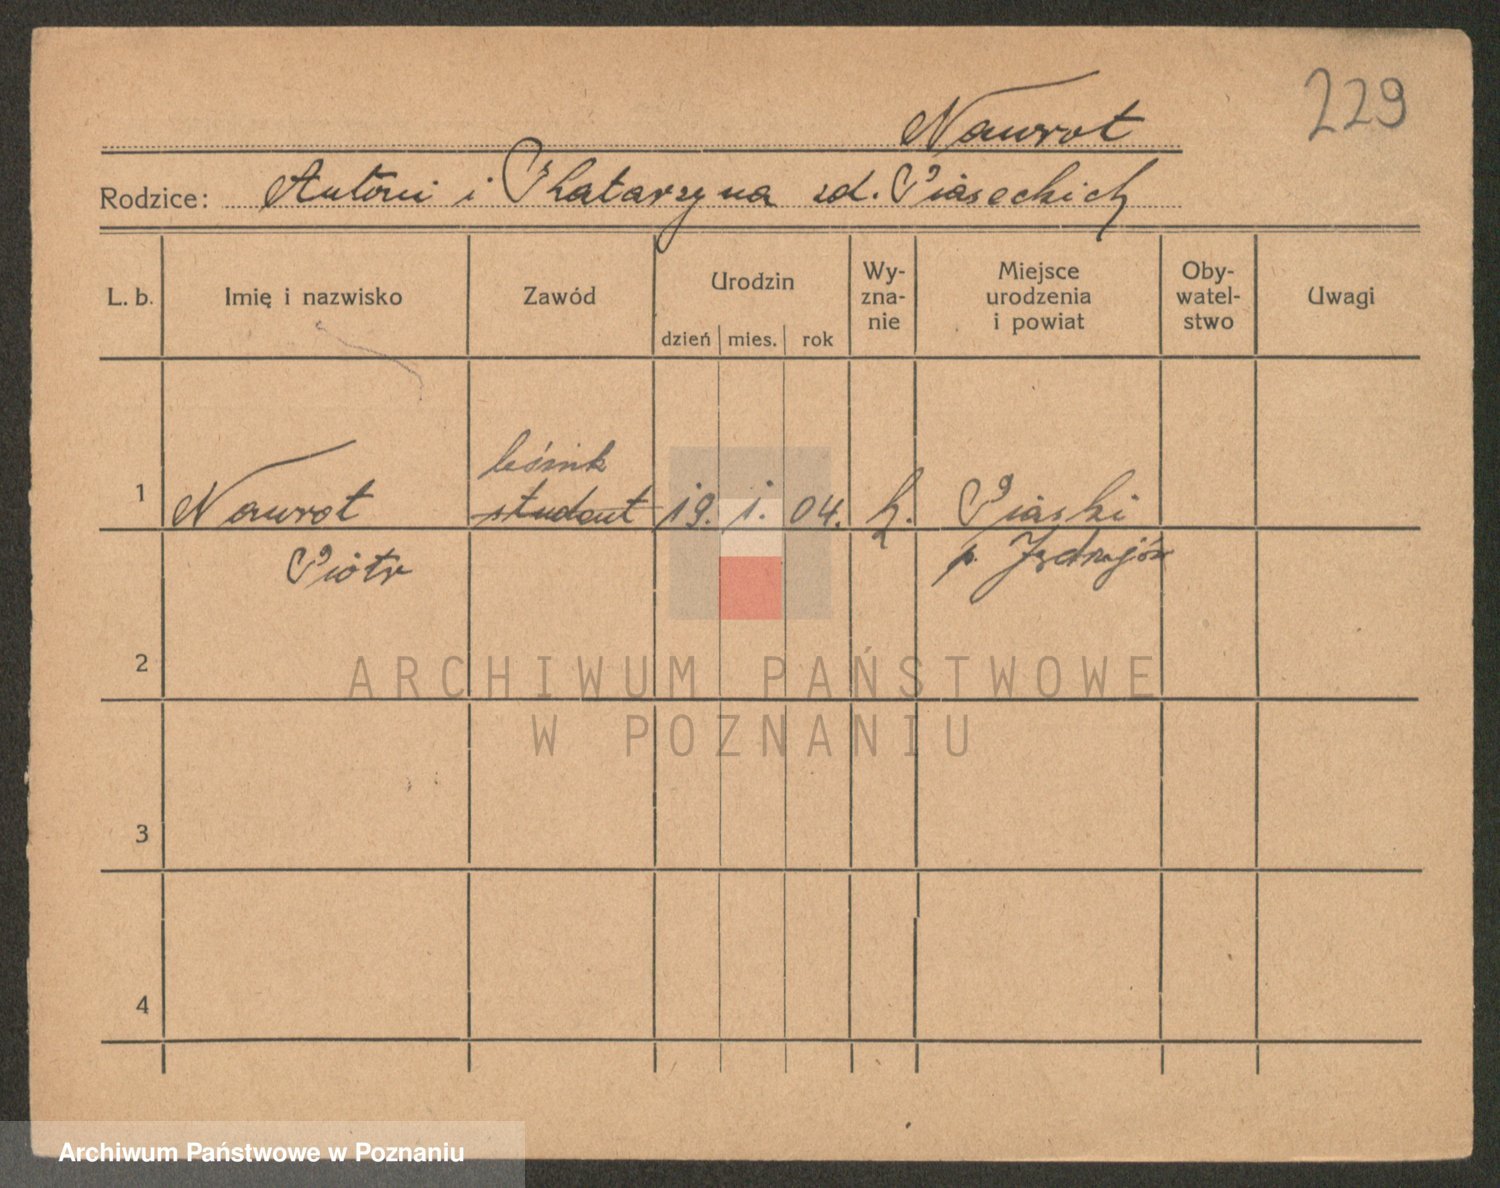 229
Nawrot
Rodzice: Antoni i Katarzyna zd. Piaseckich
L. b. Imię i nazwisko Zawód Urodzin dzień mies. rok Wy-zna-nie Miejsce urodzenia i powiat Oby-watel-stwo Uwagi
leśnik
1 Nawrot student 19. 1. 04. k. Piaski
Piotr p. Jędrzejów
2
ARCHIWUM PAŃSTWOWE
W POZNANIU
3
4
Archiwum Państwowe w Poznaniu